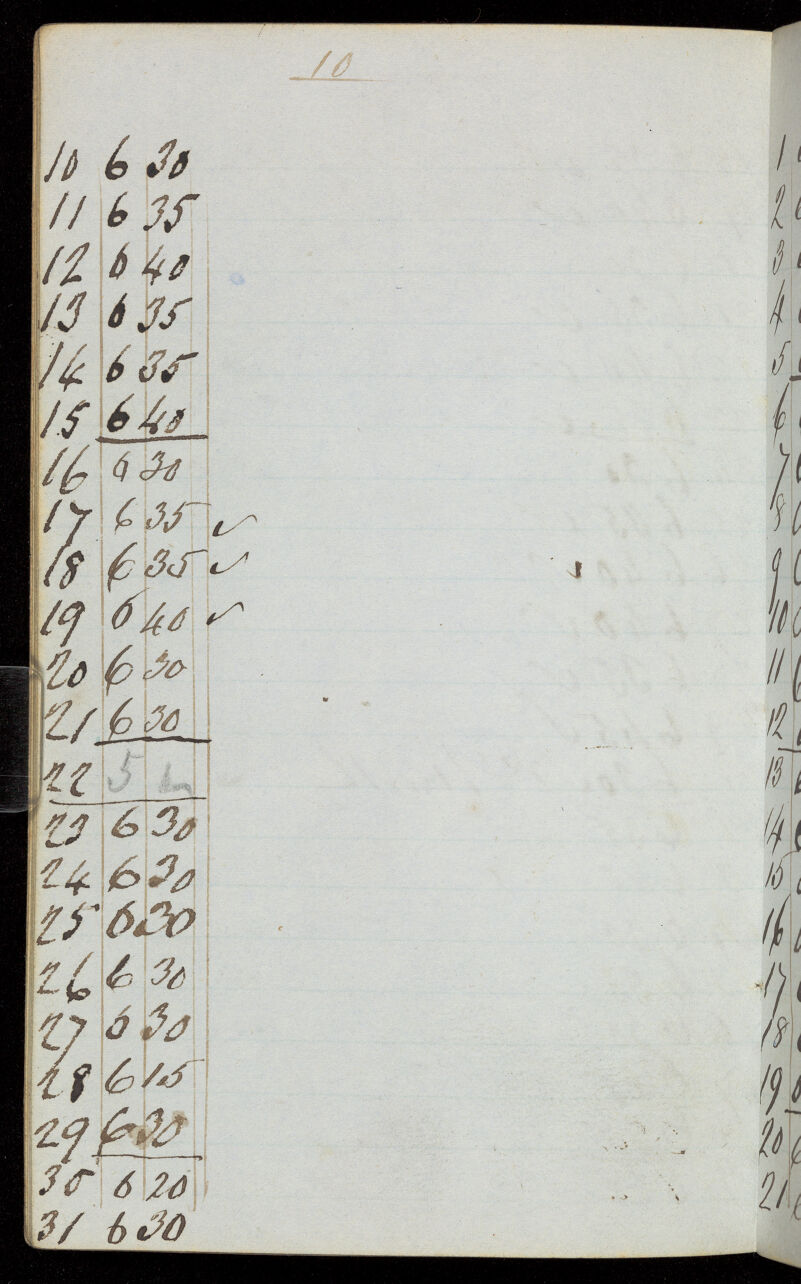 10
10 6 30
11 6 35
12 6 40
13 6 35
14 6 35
15 6 40
16 6 30
17 6 35 ✓
18 6 35 ✓
19 6 40 ✓
20 6 30
21 6 30
22 5
23 6 30
24 6 30
25 6 30
26 6 30
27 6 30
28 6 15
29 6 30
30 6 20
31 6 30
1
2
3
4
5
6
7
8
9
10
11
12
13
14
15
16
17
18
19
20
21